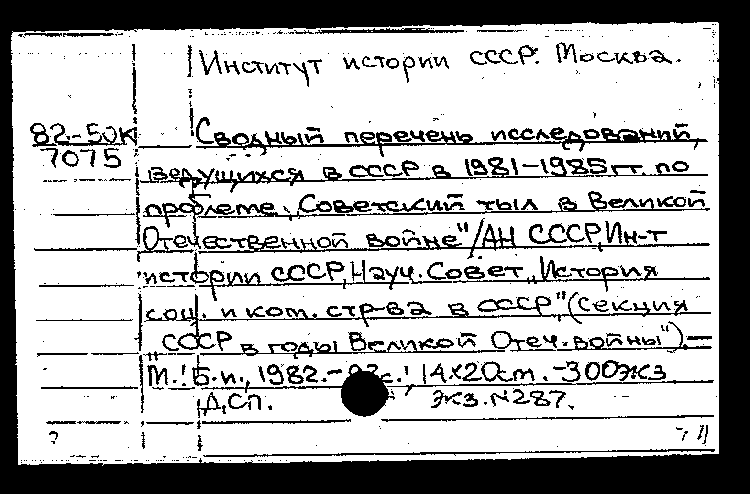 Институт истории СССР. Москва.
82-50К
7075
Сводный перечень исследований,
ведущихся в СССР в 1981-1985гг. по
проблеме „Советский тыл в Великой
Отечественной войне"/АН СССР, Ин-т
истории СССР, Науч. Совет „История
соц. и ком. стр-ва в СССР" (Секция
„СССР в годы Великой Отеч. войны").—
М.: Б.и., 1982.- 14х20см. -300экз
Д.СП. Экз. №287.